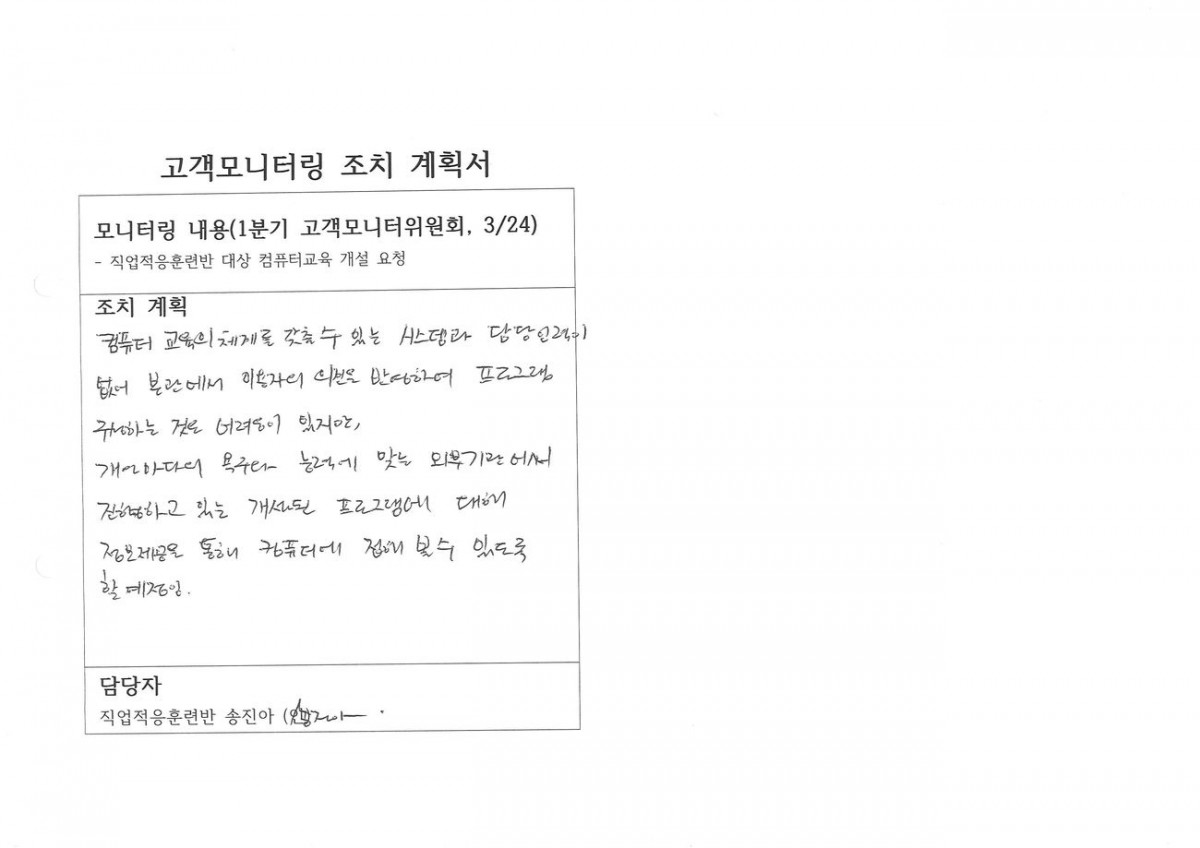 고객모니터링 조치 계획서
모니터링 내용(1분기 고객모니터위원회, 3/24)
- 직업적응훈련반 대상 컴퓨터교육 개설 요청
조치 계획
컴퓨터 교육의 체제를 갖출 수 있는 시스템과 담당인력이
없어 본관에서 이용자의 의견을 반영하여 프로그램
구성하는 것은 어려움이 있지만,
개인마다의 욕구와 능력에 맞는 외부기관에서
진행하고 있는 개설된 프로그램에 대해
정보제공을 통해 컴퓨터에 접해 볼 수 있도록
할 예정임.
담당자
직업적응훈련반 송진아 (